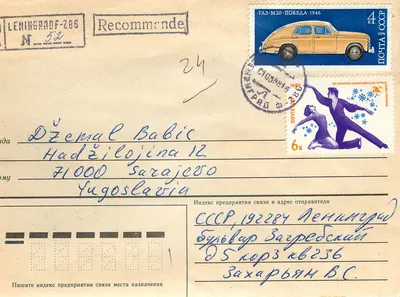 LENINGRAD-286
N 52
Recommandé
24
ГАЗ-М20 «ПОБЕДА» 1946
4 К
ПОЧТА СССР
6к
Куда
Džemal Babic
Hadžilojina 12
Кому
71000 Sarajevo
Yugoslavia
Индекс предприятия связи и адрес отправителя
СССР, 192284 Ленинград
бульвар Загребский
д5 кор3 кв236
Захарьян В.С.
Пишите индекс предприятия связи места назначения